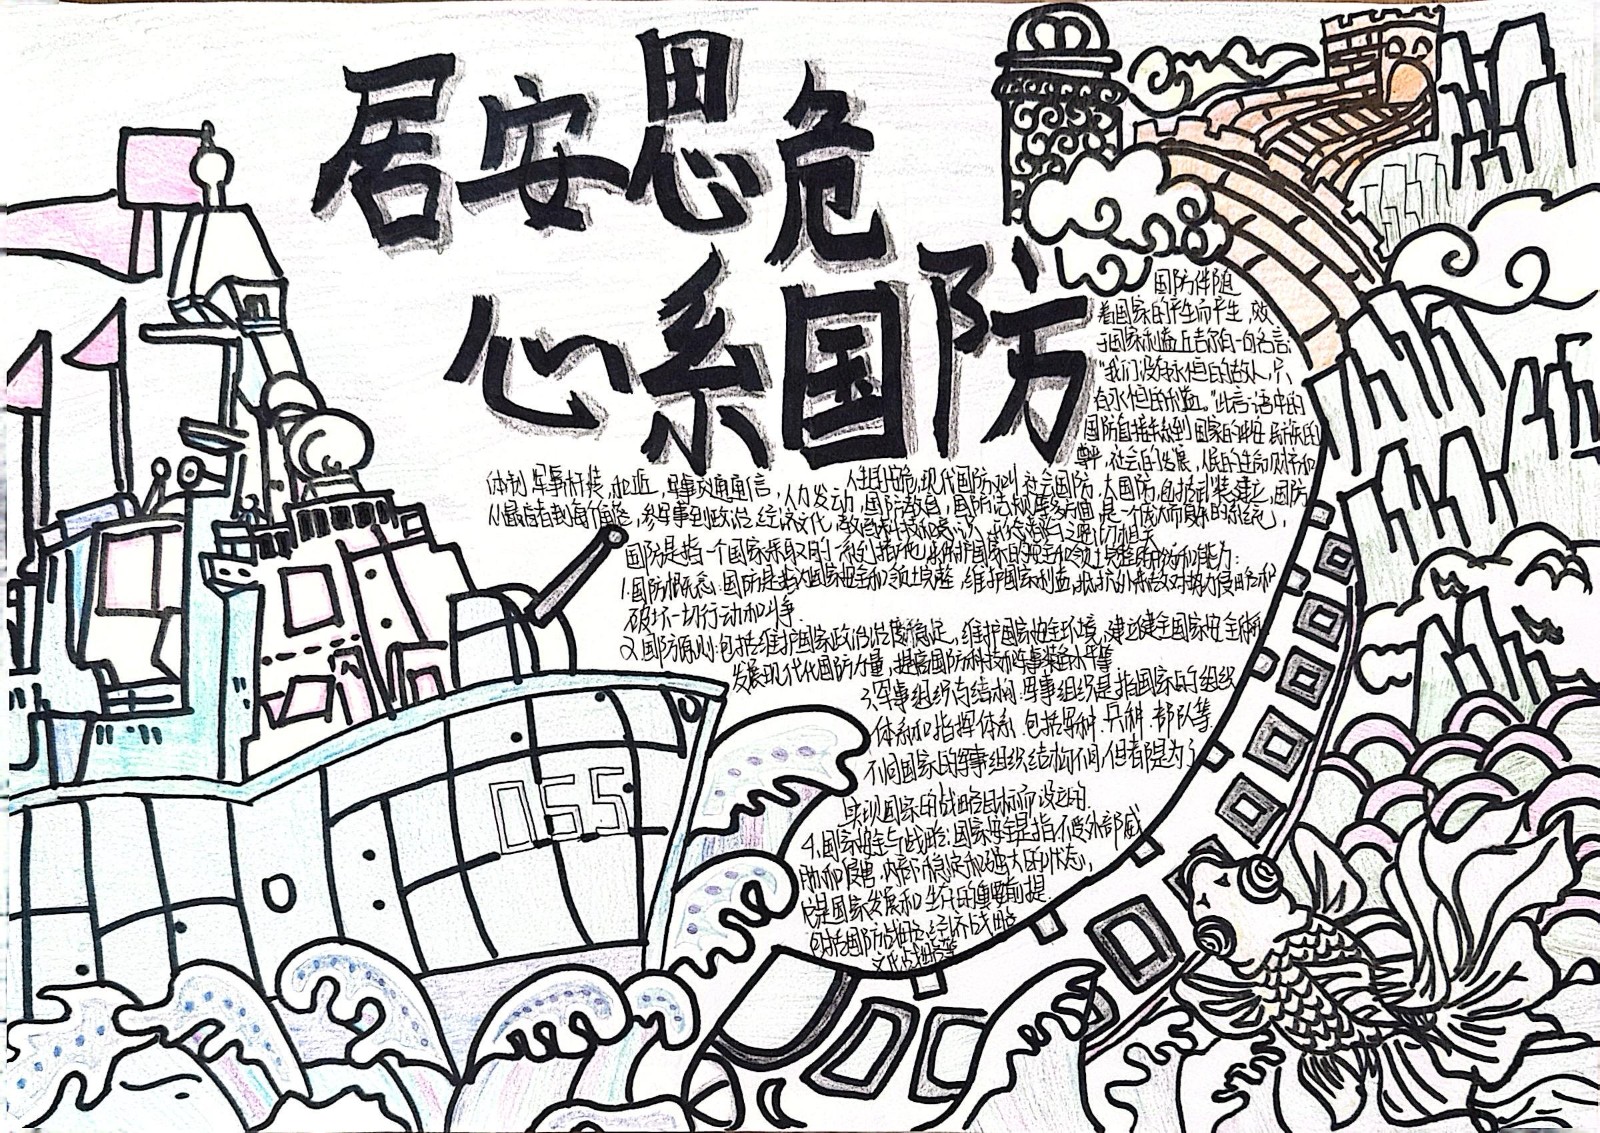 居安思危
心系国防
国防伴随
着国家的产生而产生，效
于国家利益丘吉尔有一句名言：
"我们没有永恒的敌人，只
有永恒的利益。"此言语中的
国防直接关系到国家的安全 民族的
尊严，社会的发展，人民的生命财产和
住的安危，现代国防又叫社会国防，大国防，包括武装建立，国防
体制 军事科技，和工业，军事交通通信，人力发动，国防教育，国防法规等多方面 是一个庞大而复杂的系统，
国防是指一个国家采取的一系列措施 来保护国家的安全和领土完整 的能力：
1.国防概念：国防是指为国家安全和领土完整，维护国家利益，抵抗外来敌对势力侵略和
破坏一切行动和斗争．
2.国防原则：包括维护国家政治制度稳定，维护国家安全环境，建立健全国家安全体制，
发展现代化国防力量，提高国防科技和军事装备水平等
3.军事组织与结构：军事组织是指国家的组织
体系和指挥体系 包括军种．兵种．部队等
不同国家的军事组织结构不同，但都是为了
实现国家的战略目标而设立的．
4.国家安全与战略：国家安全是指不受外部威
胁和侵害，内部稳定和强大的状态，
它是国家发展和生存的重要前提．
包括国防战略，经济战略
文化战略等
055